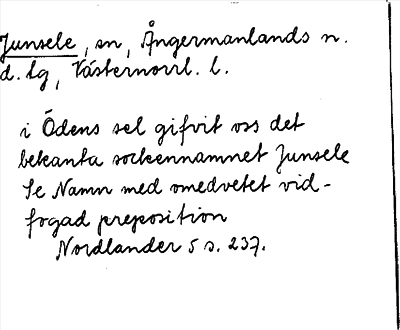 Junsele, sn, Ångermanlands n.
d. lg, Västernorrl. l.
i Ödens sel gifvit oss det
bekanta sockennamnet Junsele
Se Namn med omedvetet vid-
fogad preposition
Nordlander 5 s. 237.